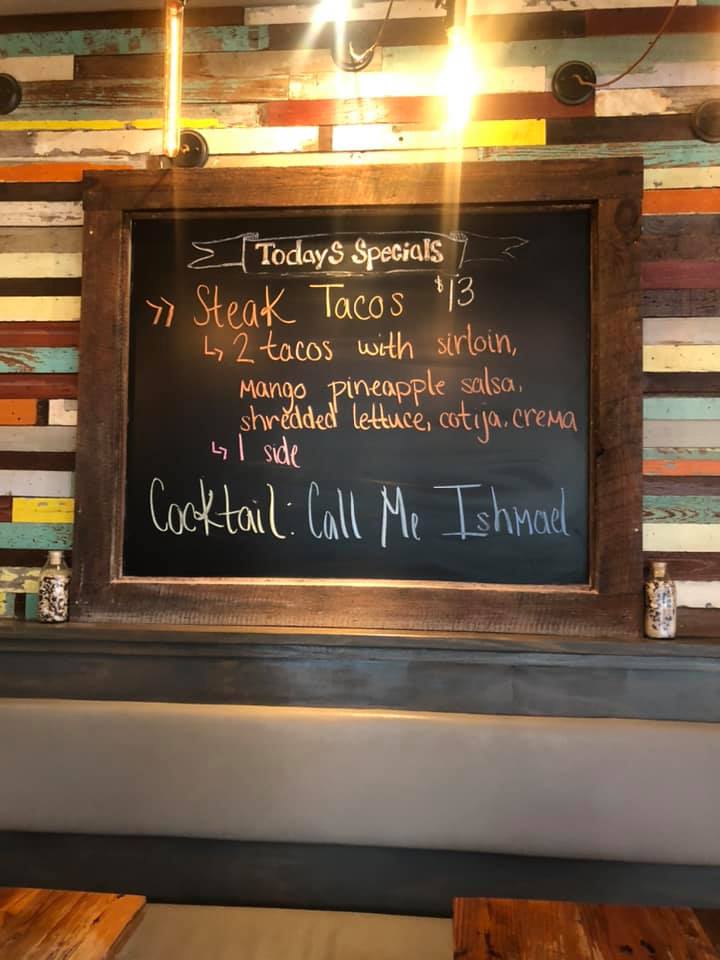 TodayS Specials
>> Steak Tacos $13
↳ 2 tacos with sirloin,
mango pineapple salsa,
shredded lettuce, cotija, crema
↳ 1 side
Cocktail: Call Me Ishmael